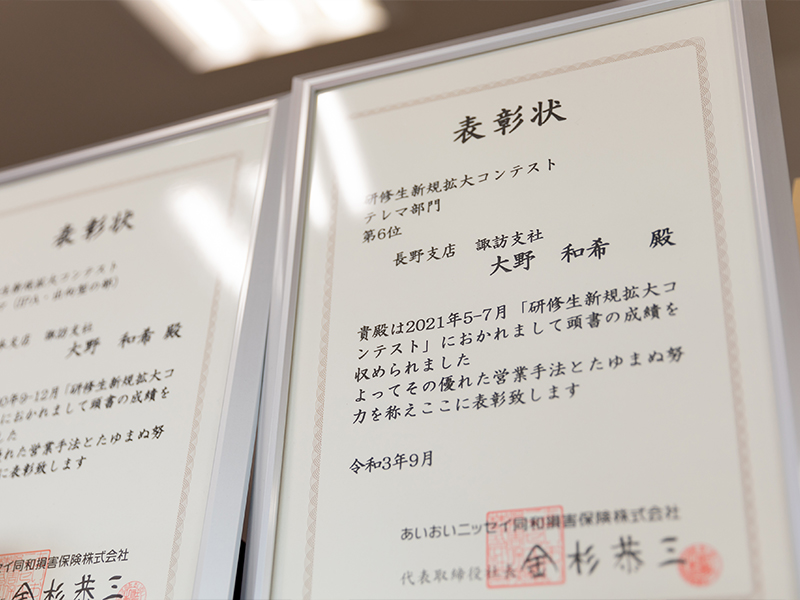 表彰状
諏訪支社
大野 和希 殿
9-12月「研修生新規拡大コ
におかれまして頭書の成績を
した
れた営業手法とたゆまぬ努
に表彰致します
セイ同和損害保険株式会社
金杉恭三
表彰状
研修生新規拡大コンテスト
テレマ部門
第6位
長野支店 諏訪支社
大野 和希 殿
貴殿は2021年5-7月「研修生新規拡大コ
ンテスト」におかれまして頭書の成績を
収められました
よってその優れた営業手法とたゆまぬ努
力を称えここに表彰致します
令和3年9月
あいおいニッセイ同和損害保険株式会社
代表取締役社長 金杉恭三